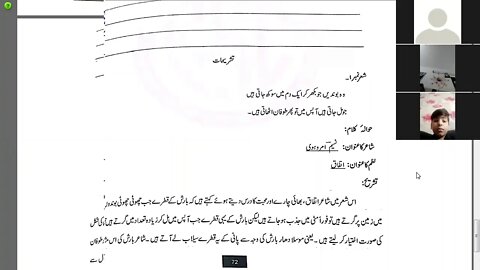 تشریحات
شعر نمبر ا۔
وہ بوندیں جو بکھر کر ایک دم میں سوکھ جاتی ہیں
جو مل جاتی ہیں آپس میں تو پھر طوفان اٹھاتی ہیں۔
حوالۂ کلام:
شاعر کا عنوان: نسیم امروہوی
نظم کا عنوان: اتفاق
تشریح:
اس شعر میں شاعر اتفاق، بھائی چارے اور محبت کا درس دیتے ہوئے کہتے ہیں کہ بارش کے قطرے جب چھوٹی چھوٹی بوندوں
میں زمین پر گرتے ہیں تو فوراً مٹی میں جذب ہو جاتے ہیں لیکن بارش کے یہی قطرے جب آپس میں مل کر زیادہ تعداد میں گرتے ہیں تو
کی صورت اختیار کر لیتے ہیں۔ یعنی موسلا دھار بارش کی وجہ سے پانی کے یہ قطرے سیلاب لے آتے ہیں۔ شاعر بارش کی اس
72